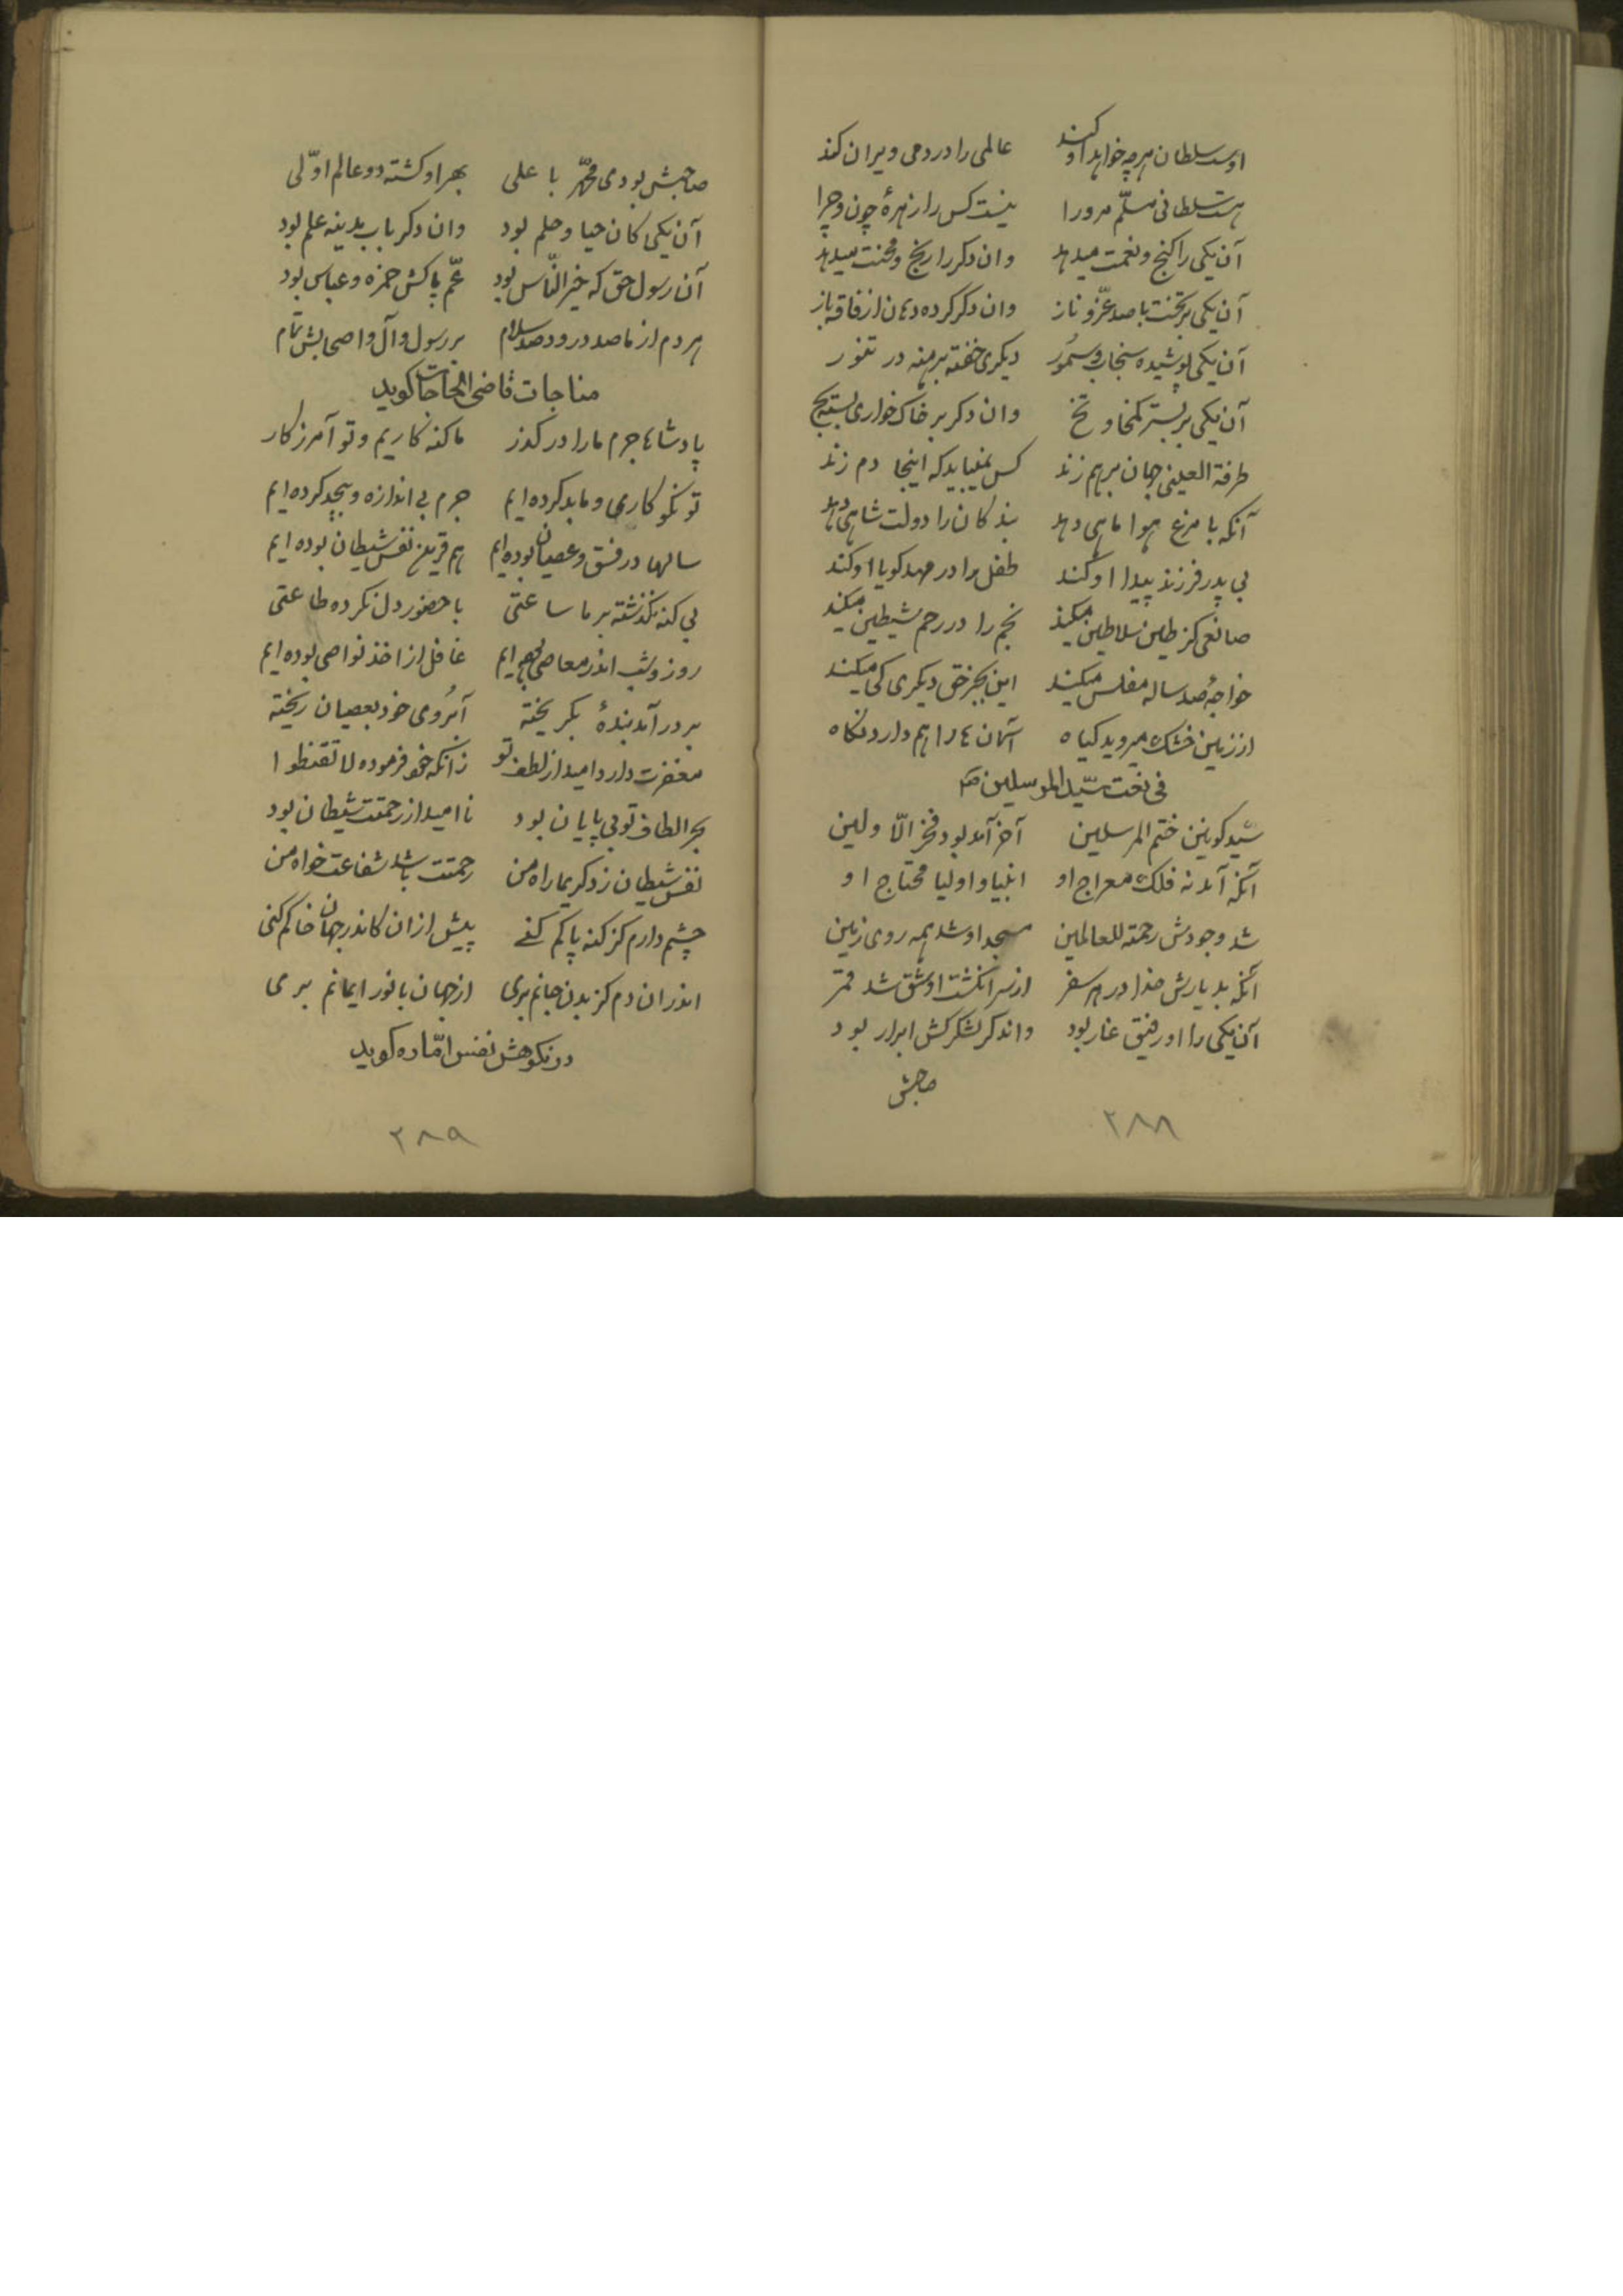 اوست سلطان هرچه خواهد او کند عالمی را در دمی ویران کند
هست سلطانی مسلّم مرورا نیست کس را زهرهٔ چون و چرا
آن یکی را کنج و نعمت میدهد وان دکر را رنج و محنت میدهد
آن یکی بر تخت با صد عزّ و ناز وان دکر کرده دهان از فاقه باز
آن یکی پوشیده سنجاب و سمور دیکری خفته برهنه در تنور
آن یکی بر بستر کمخا و نخ وان دکر بر خاک خواری بسته یخ
طرفة العینی جهان برهم زند کس نمییابد که اینجا دم زند
آنکه با مرغ هوا ماهی دهد بندکان را دولت شاهی دهد
بی پدر فرزند پیدا او کند طفل را در مهد کویا او کند
صانعی کز طین سلاطین میکند نجم را در رجم شیطین میکند
خواجهٔ صد ساله مفلس میکند این بجز حق دیکری کی میکند
از زمین خشک میروید کیاه آسمان ها را هم دارد نکاه
فی نعت سیّد المرسلین
سیّد کونین ختم المرسلین آخر آمد بود فخر الاولین
آنکه آمد نه فلک معراج او انبیا و اولیا محتاج او
شد وجودش رحمة للعالمین مسجد او شد همه روی زمین
آنکه بد یارش خدا در هر سفر از سر انکشت او شق شد قمر
آن یکی را او رفیق غار بود واندکر لشکرکش ابرار بود
صاحبش
۲۸۸
صاحبش بودی محمّد با علی بهر او کشته دو عالم اوّلی
آن یکی کان حیا و حلم بود وان دکر باب مدینه علم بود
آن رسول حق که خیر النّاس بود عّم پاکش حمزه و عباس بود
هر دم از ما صد درود صد سلام بر رسول و آل و اصحابش تمام
مناجات قاضی الحاجات کوید
پادشاها جرم ما را در کذر ما کنه کاریم و تو آمرزکار
تو نکو کاری و ما بد کرده ایم جرم بی اندازه و بیحد کرده ایم
سالها در فسق و عصیان بوده ایم هم قرین نفس شیطان بوده ایم
بی کنه نکذشته بر ما ساعتی با حضور دل نکرده طاعتی
روز و شب اندر معاصی بوده ایم غافل از اخذ نواصی بوده ایم
بر در آمد بندهٔ بکریخته آبروی خود بعصیان ریخته
مغفرت دارد امید از لطف تو زانکه خود فرموده لا تقنطوا
بحر الطاف تو بی پایان بود نا امید از رحمتت شیطان بود
نفس شیطان زد کریما راه من رحمتت باشد شفاعت خواه من
چشم دارم کز کنه پاکم کنی پیش ازان کاندر جهان خاکم کنی
اندران دم کز بدن جانم بری از جهان با نور ایمانم بری
در نکوهش نفس امّاره کوید
۲۸۹